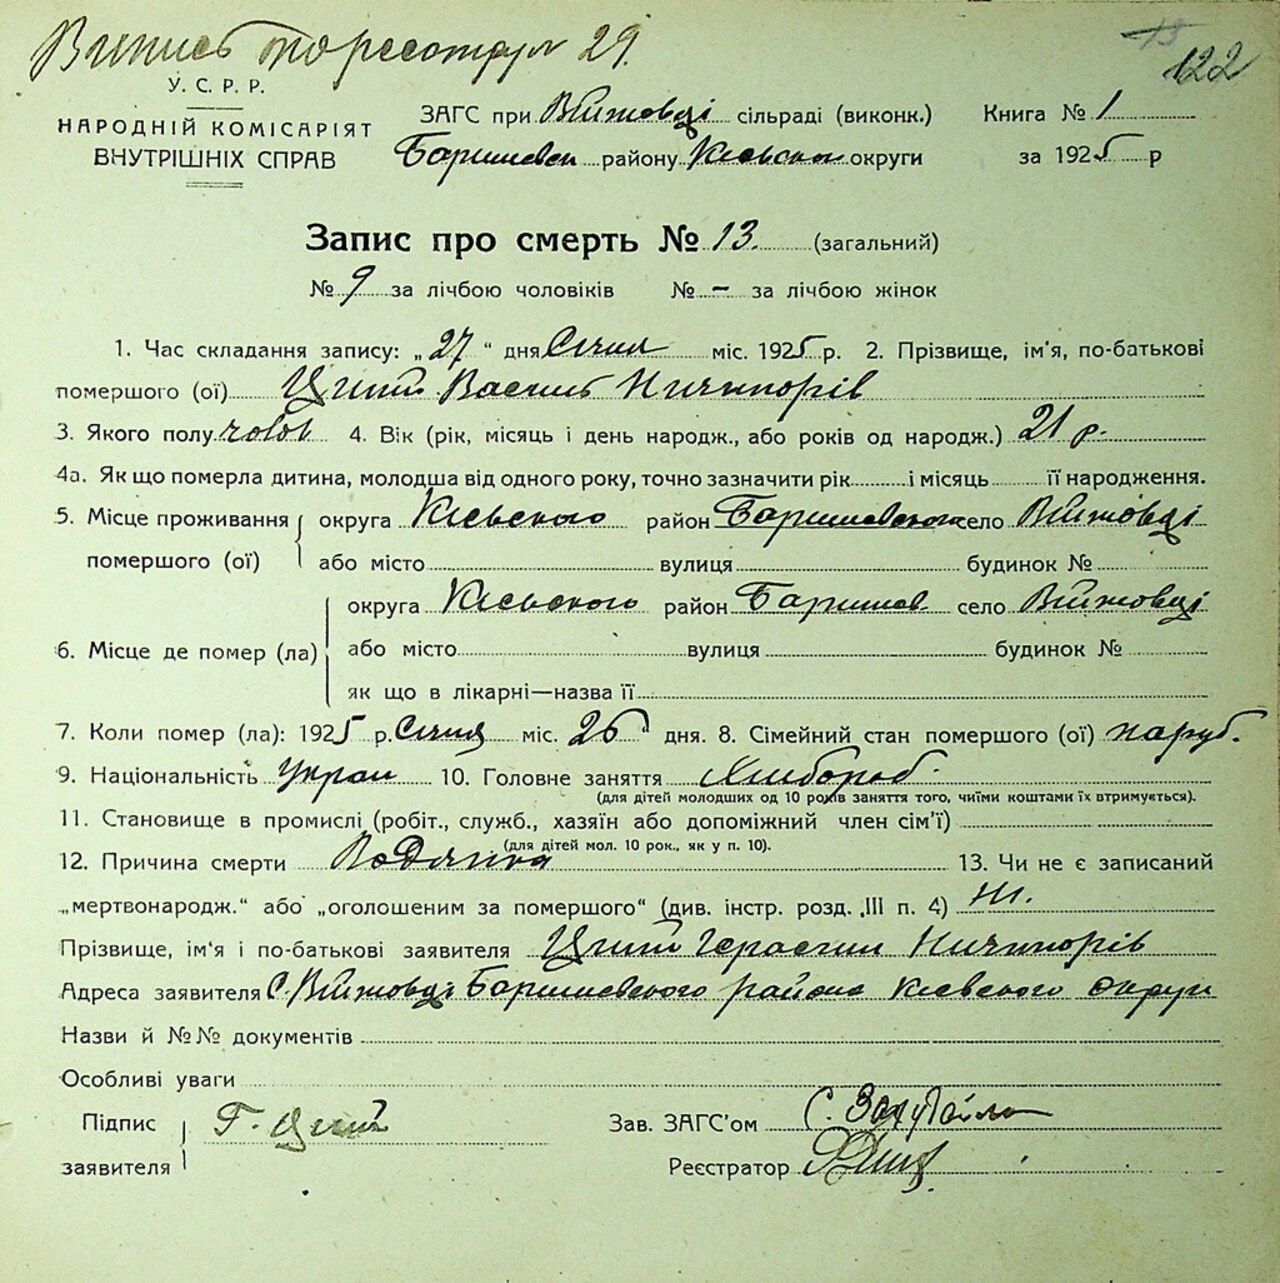 29.
122
У. С. Р. Р.
НАРОДНІЙ КОМІСАРІЯТ
ВНУТРІШНІХ СПРАВ
ЗАГС при Війтовці сільраді (виконк.)
Баришевск району Кієвской округи
Книга № 1
за 1925 р
Запис про смерть № 13. (загальний)
№ 9 за лічбою чоловіків № - за лічбою жінок
1. Час складання запису: „27“ дня Січня міс. 1925 р. 2. Прізвище, ім'я, по-батькові
помершого (ої) Василь Ничипорів
3. Якого полу чолов 4. Вік (рік, місяць і день народж., або років од народж.) 21 р.
4а. Як що померла дитина, молодша від одного року, точно зазначити рік і місяць її народження.
5. Місце проживання помершого (ої) округа Кієвского район Баришевского село Війтовці
або місто вулиця будинок №
6. Місце де помер (ла) округа Кієвского район Баришев. село Війтовці
або місто вулиця будинок №
як що в лікарні—назва її
7. Коли помер (ла): 1925 р. Січня міс. 26 дня. 8. Сімейний стан помершого (ої) паруб.
9. Національність Украї 10. Головне заняття Хлібороб.
(для дітей молодших од 10 років заняття того, чиїми коштами їх втримується).
11. Становище в промислі (робіт., служб., хазяїн або допоміжний член сім'ї)
(для дітей мол. 10 рок., як у п. 10).
12. Причина смерти Водянка 13. Чи не є записаний
„мертвонародж.“ або „оголошеним за помершого“ (див. інстр. розд. III п. 4) Ні.
Прізвище, ім'я і по-батькові заявителя Герасим Ничипорів
Адреса заявителя С. Війтовці Баришевского района Кієвского округи
Назви й №№ документів
Особливі уваги
Підпис заявителя Г.
Зав. ЗАГС'ом С.
Реєстратор